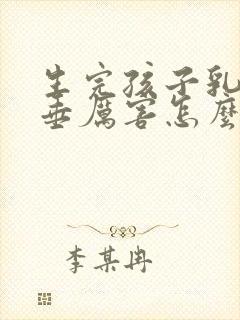 生完孩子乳
垂厲害怎麼
李某冉